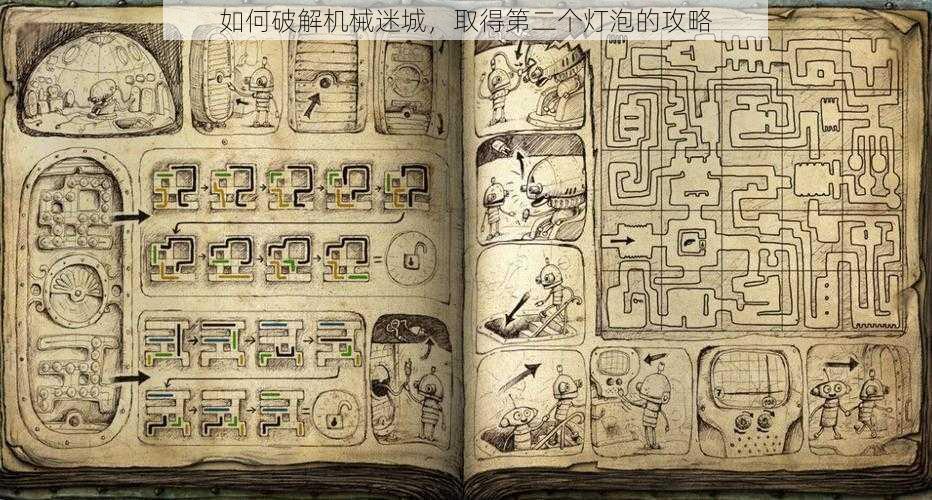 如何破解机械迷城，取得第二个灯泡的攻略